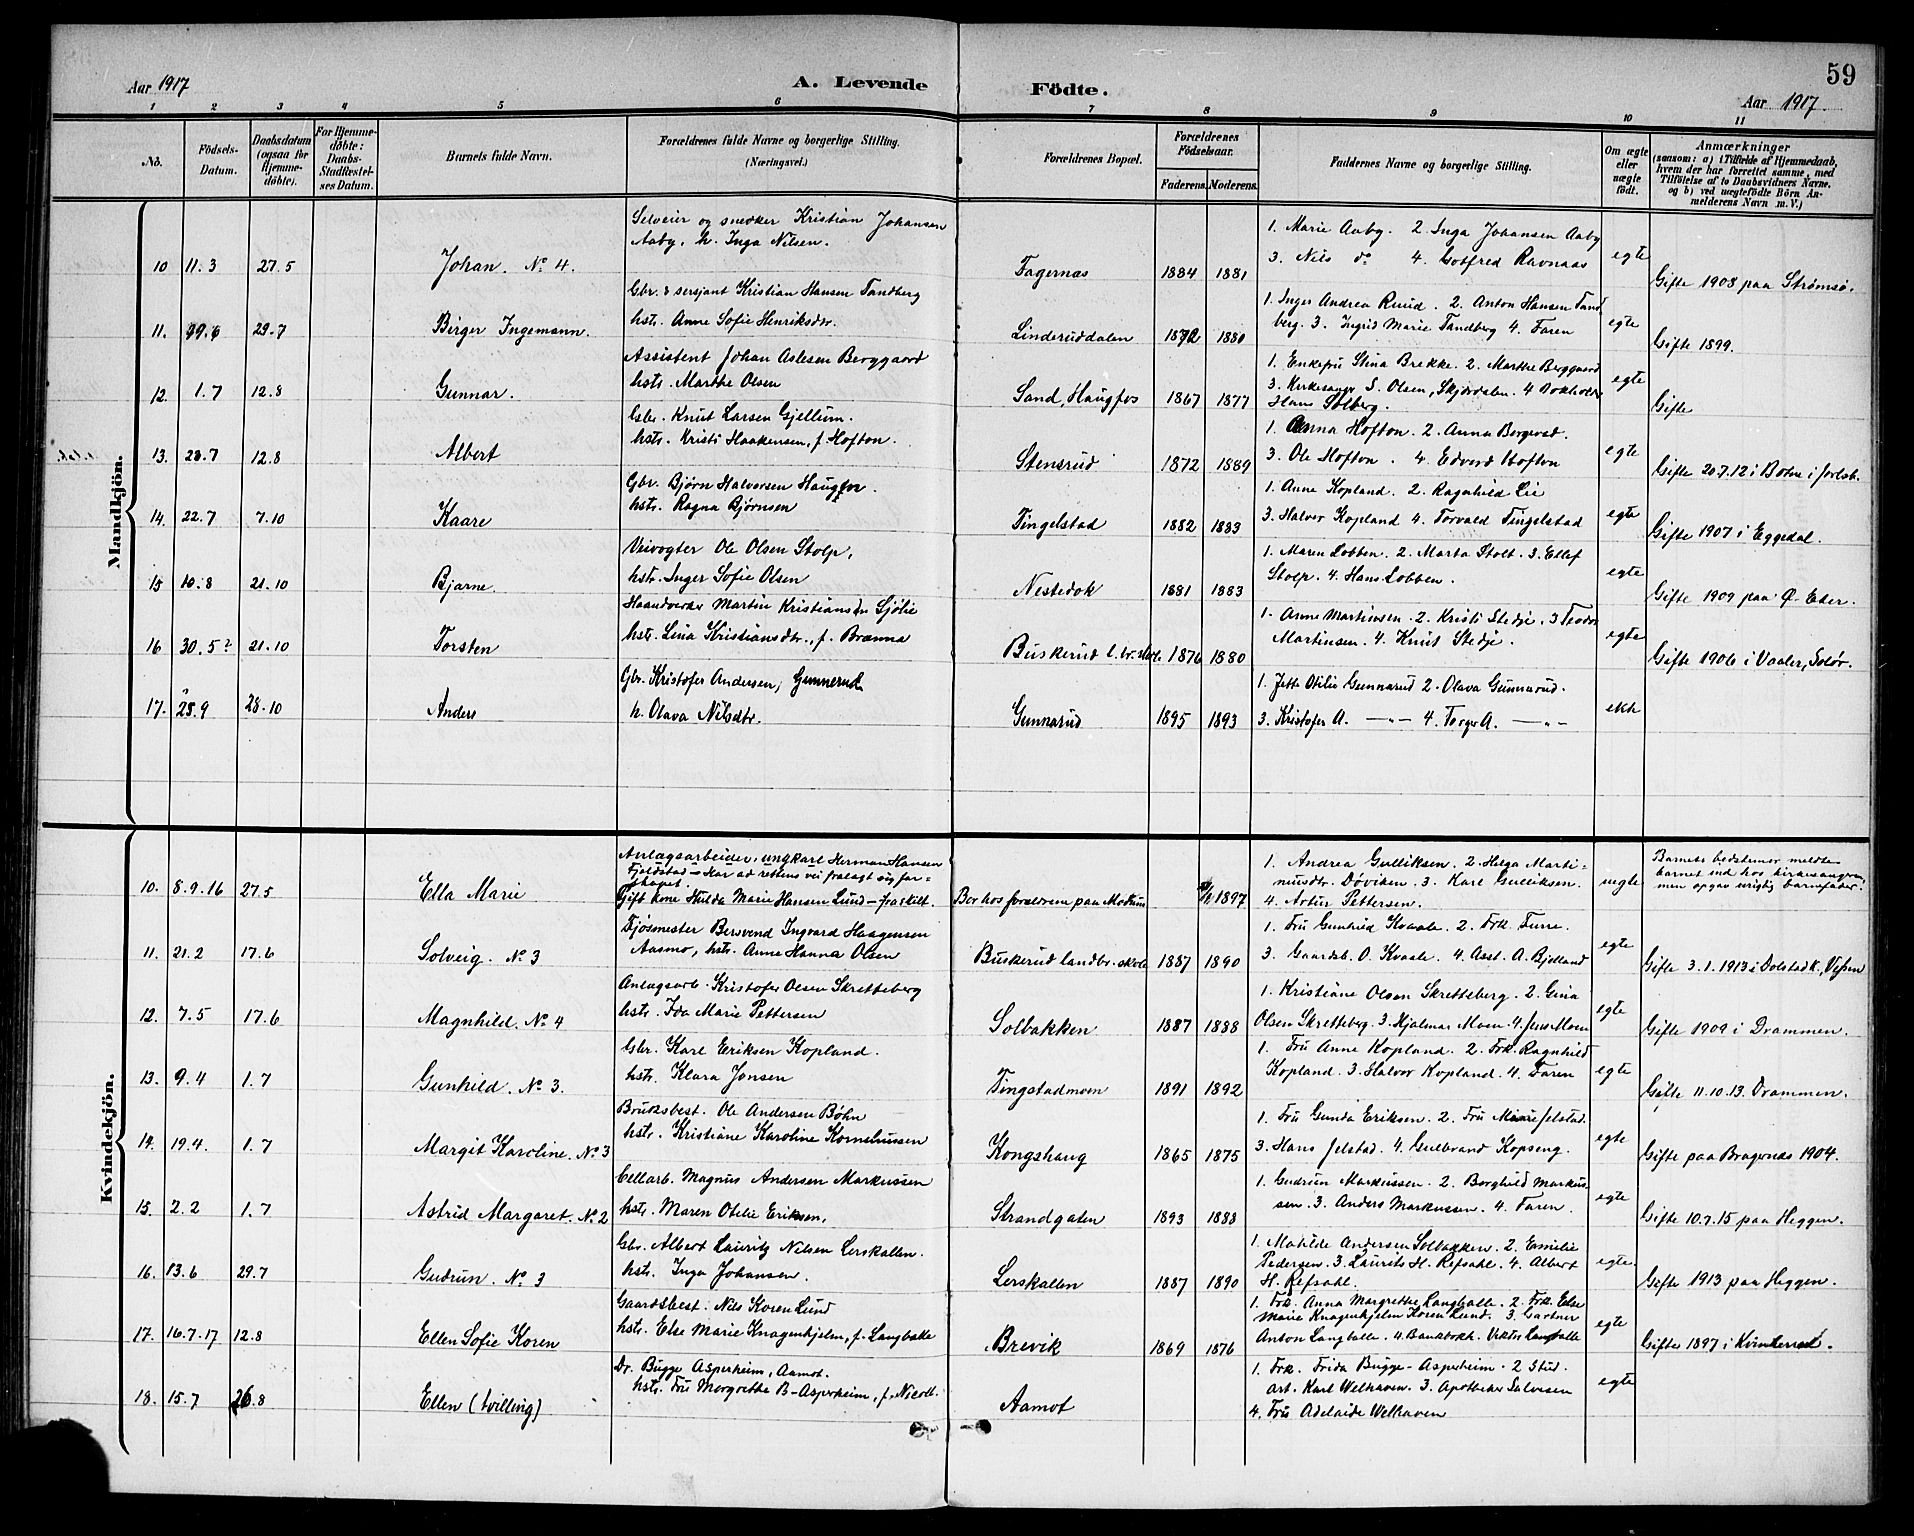 59
Aar 1917
A. Levende
Födte.
Aar 1917.
1 2 3 4 5 6 7 8 9 10 11
No.
Födsels-
Datum.
Daabsdatum
(ogsaa for
Hjemme-
døbte).
For Hjemme-
døbte:
Daabs-
Stadfæstel-
ses Datum.
Barnets fulde Navn.
Forældrenes fulde Navne og borgerlige Stilling.
(Næringsvei.)
Forældrenes Bopæl.
Forældrenes
Födselsaar.
Faderens. Moderens.
Faddernes Navne og borgerlige Stilling.
Om ægte
eller
uægte
født.
Anmærkninger
(saasom: a) i Tilfælde af Hjemmedaab,
hvem der har forrettet samme, med
Tilföielse af to Daabsvidners Navne.
og b) ved uægtefödte Börn An-
melderens Navn m. V.)
Mandkjön.
Selveier og snedker Kristian Johansen
Aaby. h. Inga Nilsen.
10 11.3 27.5 Johan. No 4. Fagernæs 1884 1881
1. Marie Aaby. 2. Inga Johansen Aaby
3. Nils do 4. Gotfred Ravnaas
egte
Gifte 1908 paa Strømsø.
Gbr. & sersjant Kristian Hansen Tandberg
hstr. Anne Sofie Henriksdtr.
11. 29.7 Birger Ingemann. Linderuddalen 1872 1880
1. Inger Andrea Ruud. 2. Anton Hansen Tand
berg. 3. Ingrid Marie Tandberg 4. Faren
egte
Gifte 1899.
Assistent Johan Aslesen Berggaard
hstr. Marthe Olsen
12. 1.7 12.8 Gunnar. Sand, Haugfos 1867 1877
1. Enkefru Stina Brekke. 2. Marthe Berggaard
3. Kirkesanger S. Olsen, Skjørdalen. 4 Bokholder
Hans Solberg.
egte
Gifte
Gbr. Knut Larsen Gjellum.
hstr. Kristi Haakensen, f. Hofton.
13. 23.7 12.8 Albert Stensrud 1872 1889
1. Anna Hofton. 2. Anna
3. Ole Hofton. 4. Edvard Hofton
egte
Gifte 20.7.12 i Botne i Jarlsb.
Gbr. Bjørn Halvorsen Haugfos.
hstr. Ragna Bjørnsen
14. 22.7 7.10 Kaare Tingelstad 1882 1883
1. Anne Kopland. 2. Ragnhild Lie
3. Halvor Kopland 4. Torvald Tingelstad
egte
Gifte 1907 i Eggedal.
Veivogter Ole Olsen Stolp,
hstr. Inger Sofie Olsen
15 10.8 21.10 Bjarne. Nestedok 1881 1883
1. Maren Lobben. 2. Marta Stolt. 3. Ellef
Stolp. 4. Hans Lobben.
egte
Gifte 1909 paa Ø. Eker.
Haandverker Martin Kristiansen Sjølie
hstr. Lina Kristiansdtr., f. Brænna
16 30.5? 21.10 Torsten Buskerud l.br.skole 1876 1880
1. Anne Martinsen. 2. Kristi Stedje. 3 Teodor
Martinsen. 4. Knut Stedje.
egte
Gifte 1906 i Vaaler, Solør.
Gbr. Kristofer Andersen, Gunnerud
h. Olava Nilsdtr.
17. 28.9 28.10 Anders Gunnarud 1895 1893
1. Jette Otilie Gunnarud 2. Olava Gunnarud.
3. Kristofer A. —"— 4. Torger A. —"—
ekte
Kvindekjön.
Anlægsarbeider, ungkarl Herman Hansen
Fjeldstad – Har ad rettens vei fralagt sig far-
skapet.
Gift kone Hulda Marie Hansen Lund – fraskilt.
10. 8.9.16 27.5 Ella Marie Bor hos forældrene paa Modum 1897
1. Andrea Gulliksen. 2. Helga Marti-
nusdtr. Døviken. 3. Karl Gulliksen.
4. Artur Pettersen.
uegte
Barnets bedstemor meldte
barnet ind hos kirkesangeren,
men opgav urigtig barnefader.
Fjøsmester Bersvend Ingvard Haagensen
Aasmo, hstr. Anne Hanna Olsen
11. 21.2 17.6 Solveig. No 3 Buskerud landbr. skole 1887 1890
1. Fru Gunhild Kvaale. 2. Frk. Furre.
3. Gaardsb. O. Kvaale. 4. Asst. A. Bjelland
egte
Gifte 3.1.1913 i Dolstad k., Vefsen
Anlægsarb. Kristofer Olsen Skretteberg
hstr. Ida Marie Pettersen
12. 7.5 17.6 Magnhild. No 4 Solbakken 1887 1888
1. Kristiane Olsen Skretteberg. 2. Gina
Olsen Skretteberg. 3. Hjalmar Moen. 4. Jens Moen
egte
Gifte 1909 i Drammen.
Gbr. Karl Eriksen Kopland.
hstr. Klara Jonsen
13. 9.4 1.7 Gunhild. No 3. Tingstadmoen 1891 1892
1. Fru Anne Kopland. 2. Frk. Ragnhild
Kopland. 3. Halvor Kopland. 4. Faren
egte
Gifte 11.10.13. Drammen.
Bruksbest. Ole Andersen Bøhn
hstr. Kristiane Karoline Korneliussen
14. 19.4. 1.7 Margit Karoline. No 3 Kongshaug 1865 1875
1. Fru Gunda Eriksen. 2. Fru Marie Jelstad.
3. Hans Jelstad. 4. Gulbrand Kopseng.
egte
Gifte paa Bragernæs 1904.
Cellarb. Magnus Andersen Markussen
hstr. Maren Otelie Eriksen,
15. 2.2 1.7 Astrid Margaret. No 2 Strandgaten 1893 1888
1. Gudrun Markussen. 2. Borghild Markus
sen. 3. Anders Markussen. 4. Faren.
egte
Gifte 10.7.15 paa Heggen.
Gbr. Albert Lauritz Nilsen Lerskallen.
hstr. Inga Johansen.
16. 13.6 29.7 Gudrun. No 3 Lerskallen 1887 1890
1. Matilde Andersen Solbakken. 2. Emilie
Pedersen. 3. Laurits H. Refsahl. 4. Albert
H. Refsahl.
egte
Gifte 1913 paa Heggen.
Gaardsbest. Nils Koren Lund
hstr. Else Marie Knagenhjelm, f. Langballe
17. 16.7.17 12.8 Ellen Sofie Koren Brevik 1869 1876
1. Frk. Anna Margrethe Langballe. 2. Frk. Else
Marie Knagenhjelm Koren Lund. 3. Gartner
Anton Langballe. 4. Bankbokh. Viktor Langballe
egte
Gifte 1897 i
Dr. Bugge Asperheim, Aamot.
hstr. Fru Margrethe B-Asperheim, f.
18. 15.7 26.8 Ellen (tvilling) Aamot
1. Frk. Frida Bugge-Asperheim. 2 Stud.
art. Karl Welhaven. 3. Apotheker Salvesen
4. Fru Adelaide Welhaven
egte